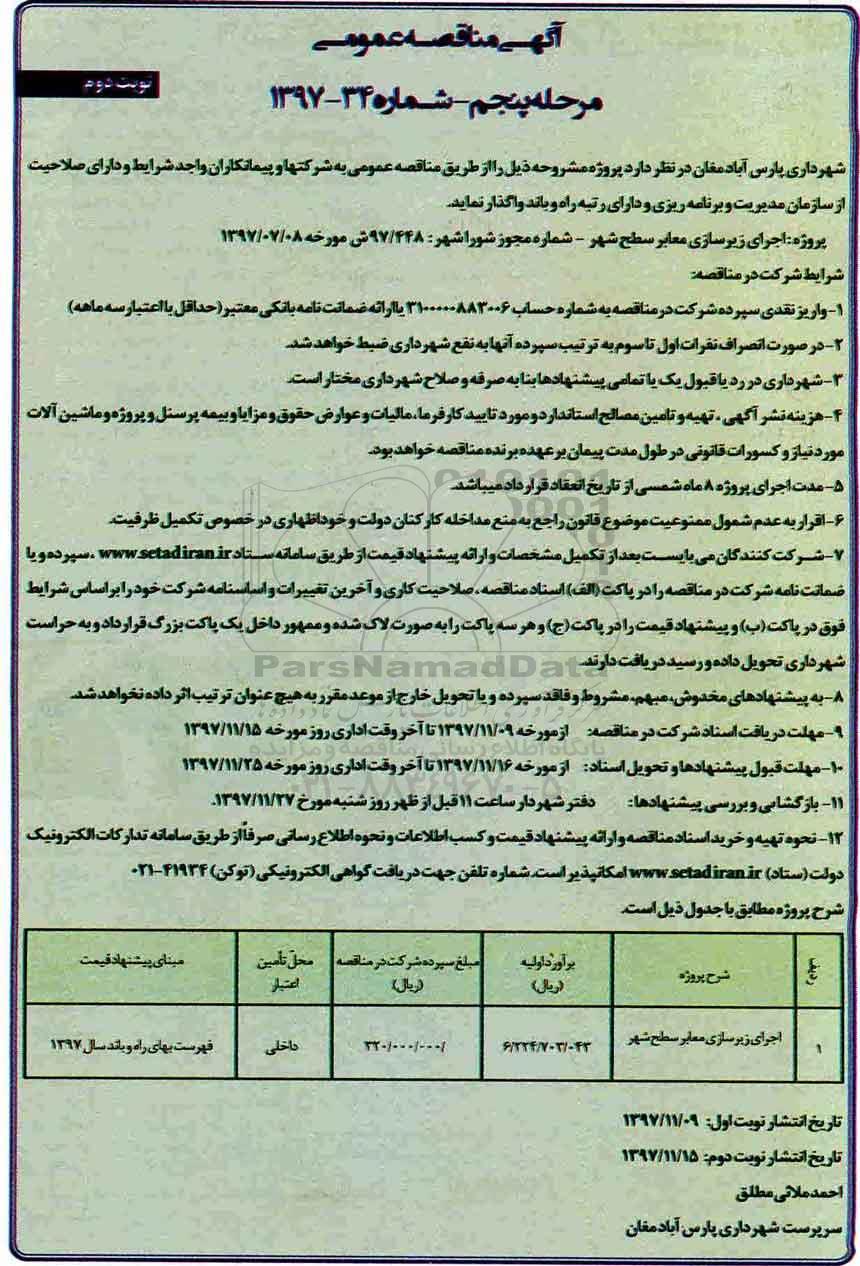 آگهی مناقصه عمومی
نوبت دوم
مرحله پنجم - شماره ۳۴-۱۳۹۷
شهرداری پارس آباد مغان در نظر دارد پروژه مشروحه ذیل را از طریق مناقصه عمومی به شرکتها و پیمانکاران واجد شرایط و دارای صلاحیت
از سازمان مدیریت و برنامه ریزی و دارای رتبه راه و باند واگذار نماید.
پروژه: اجرای زیرسازی معابر سطح شهر - شماره مجوز شورا شهر: ۹۷/۴۴۸ش مورخه ۱۳۹۷/۰۷/۰۸
شرایط شرکت در مناقصه:
۱- واریز نقدی سپرده شرکت در مناقصه به شماره حساب ۳۱۰۰۰۰۰۸۸۳۰۰۶ یا ارائه ضمانت نامه بانکی معتبر (حداقل با اعتبار سه ماهه)
۲- در صورت انصراف نفرات اول تا سوم به ترتیب سپرده آنها به نفع شهرداری ضبط خواهد شد.
۳- شهرداری در رد یا قبول یک یا تمامی پیشنهادها بنا به صرفه و صلاح شهرداری مختار است.
۴- هزینه نشر آگهی، تهیه و تامین مصالح استاندارد و مورد تایید کارفرما، مالیات و عوارض حقوق و مزایا و بیمه پرسنل و پروژه و ماشین آلات
مورد نیاز و کسورات قانونی در طول مدت پیمان بر عهده برنده مناقصه خواهد بود.
۵- مدت اجرای پروژه ۸ ماه شمسی از تاریخ انعقاد قرارداد میباشد.
۶- اقرار به عدم شمول ممنوعیت موضوع قانون راجع به منع مداخله کارکنان دولت و خوداظهاری در خصوص تکمیل ظرفیت.
۷- شرکت کنندگان می بایست بعد از تکمیل مشخصات و ارائه پیشنهاد قیمت از طریق سامانه ستاد www.setadiran.ir ، سپرده و یا
ضمانت نامه شرکت در مناقصه را در پاکت (الف) اسناد مناقصه، صلاحیت کاری و آخرین تغییرات و اساسنامه شرکت خود را بر اساس شرایط
فوق در پاکت (ب) و پیشنهاد قیمت را در پاکت (ج) و هر سه پاکت را به صورت لاک شده و ممهور داخل یک پاکت بزرگ قرارداد و به حراست
شهرداری تحویل داده و رسید دریافت دارند.
ParsNamadData
۸- به پیشنهادهای مخدوش، مبهم، مشروط و فاقد سپرده و یا تحویل خارج از موعد مقرر به هیچ عنوان ترتیب اثر داده نخواهد شد.
۹- مهلت دریافت اسناد شرکت در مناقصه: از مورخه ۱۳۹۷/۱۱/۰۹ تا آخر وقت اداری روز مورخه ۱۳۹۷/۱۱/۱۵
پایگاه اطلاع رسانی مناقصه و مزایده
۱۰- مهلت قبول پیشنهادها و تحویل اسناد: از مورخه ۱۳۹۷/۱۱/۱۶ تا آخر وقت اداری روز مورخه ۱۳۹۷/۱۱/۲۵
۱۱- بازگشایی و بررسی پیشنهادها: دفتر شهردار ساعت ۱۱ قبل از ظهر روز شنبه مورخ ۱۳۹۷/۱۱/۲۷.
۱۲- نحوه تهیه و خرید اسناد مناقصه و ارائه پیشنهاد قیمت و کسب اطلاعات و نحوه اطلاع رسانی صرفاً از طریق سامانه تدارکات الکترونیک
دولت (ستاد) www.setadiran.ir امکانپذیر است. شماره تلفن جهت دریافت گواهی الکترونیکی (توکن) ۴۱۹۳۴-۰۲۱
شرح پروژه مطابق با جدول ذیل است.
ردیف | شرح پروژه | برآورد اولیه (ریال) | مبلغ سپرده شرکت در مناقصه (ریال) | محل تأمین اعتبار | مبنای پیشنهاد قیمت
۱ | اجرای زیرسازی معابر سطح شهر | ۶/۲۲۴/۷۰۳/۰۴۳ | ۳۲۰/۰۰۰/۰۰۰/ | داخلی | فهرست بهای راه و باند سال ۱۳۹۷
تاریخ انتشار نوبت اول: ۱۳۹۷/۱۱/۰۹
تاریخ انتشار نوبت دوم: ۱۳۹۷/۱۱/۱۵
احمد ملائی مطلق
سرپرست شهرداری پارس آباد مغان